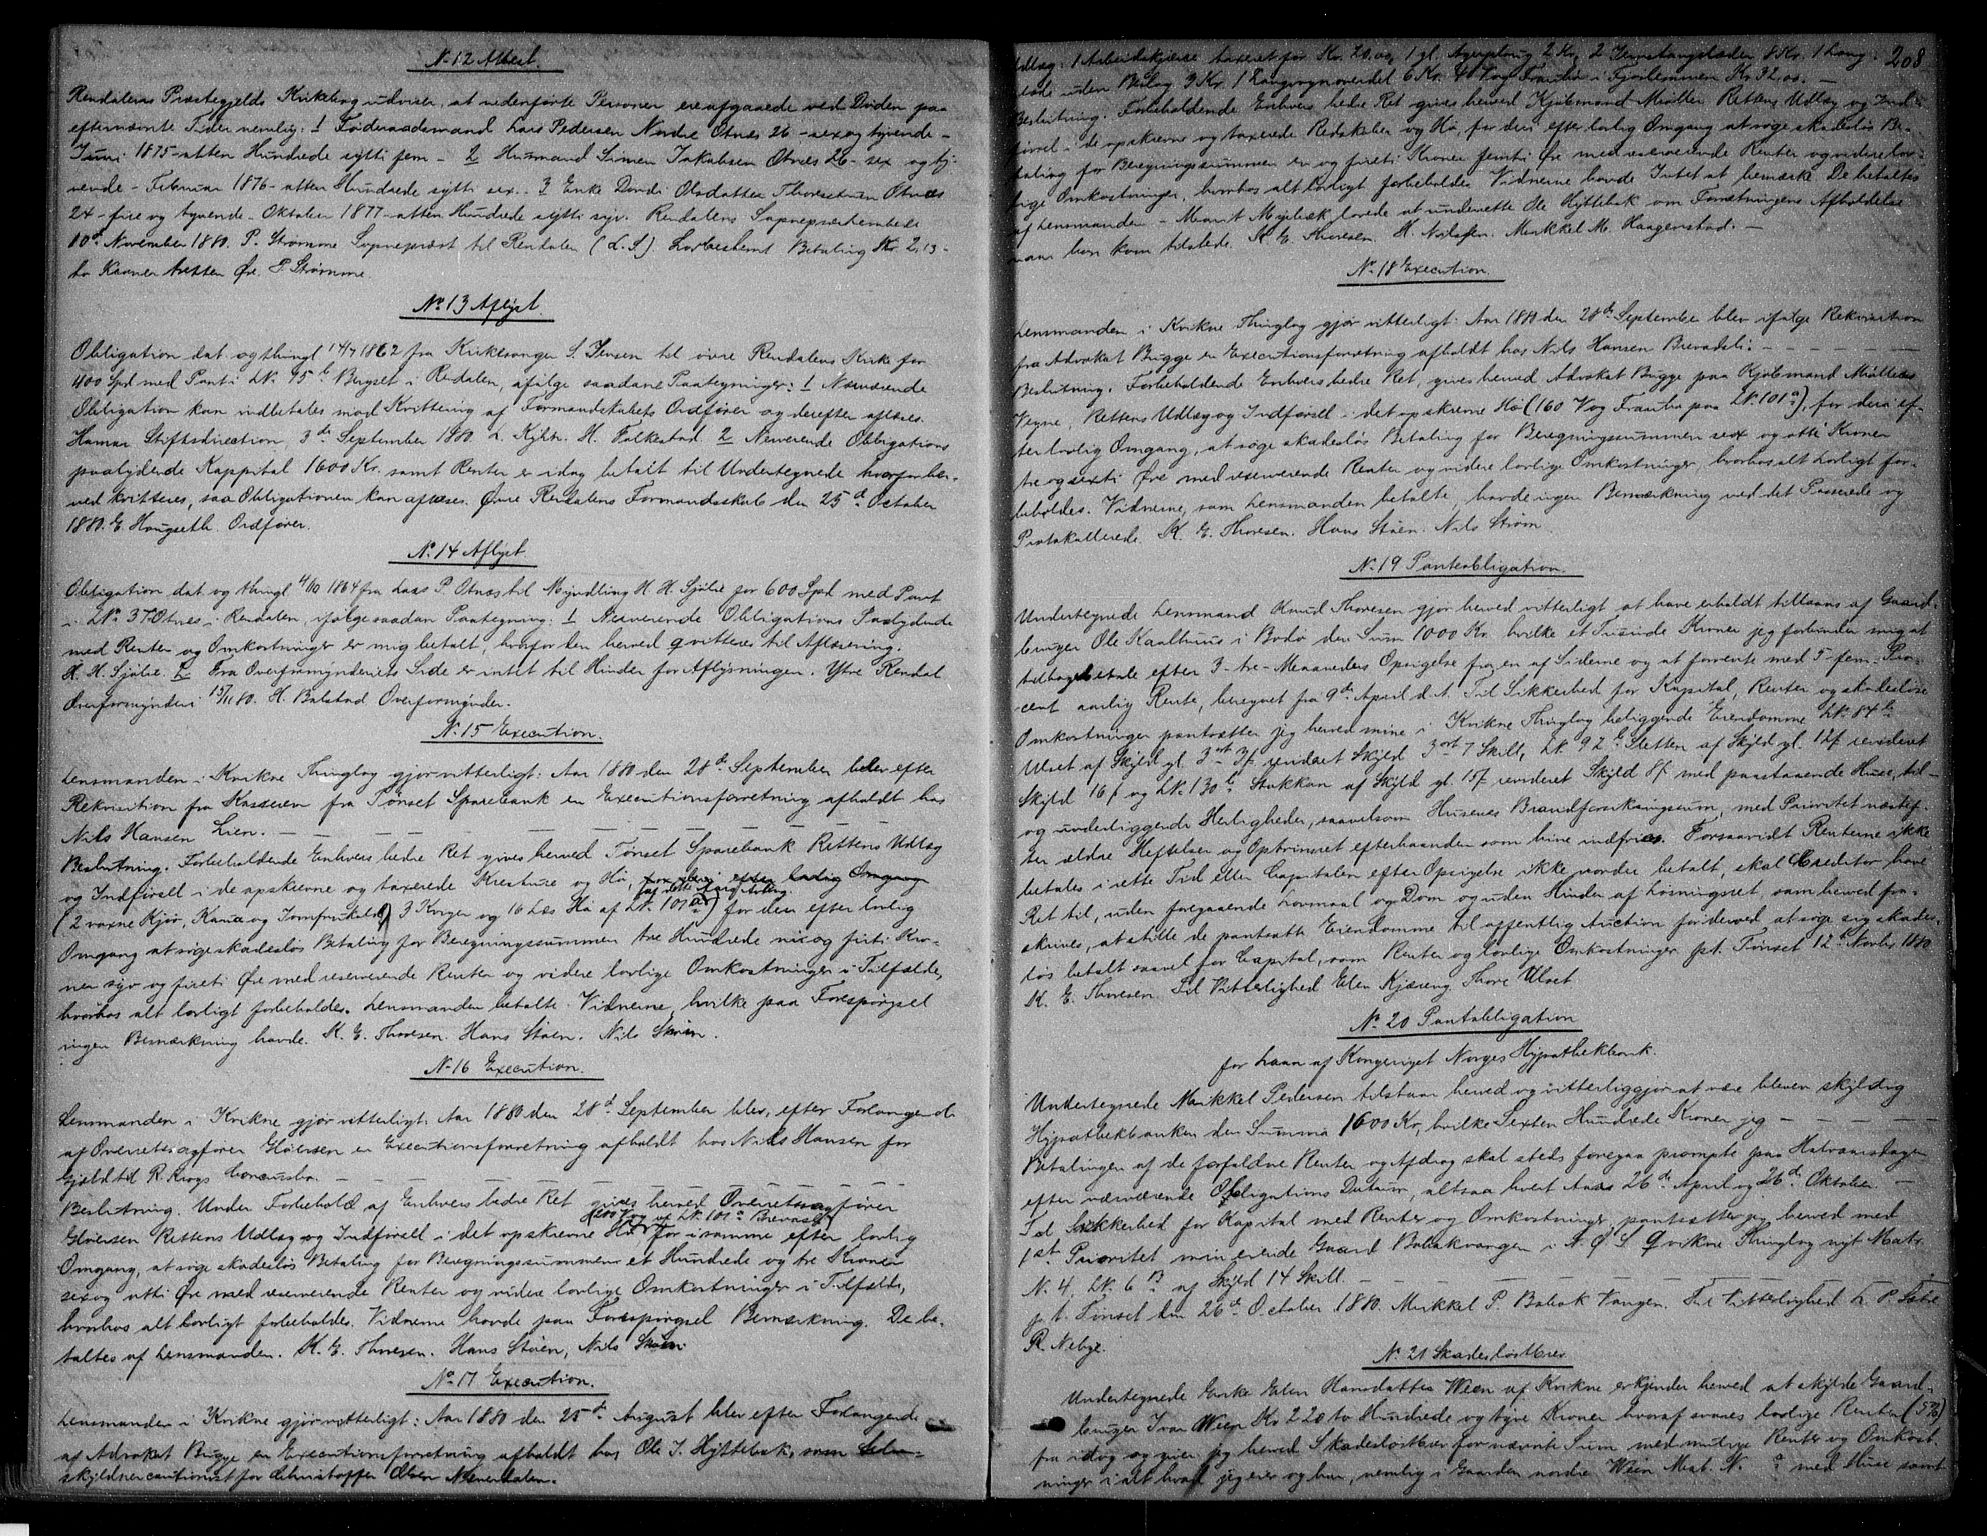 No 12 Attest.
Rendalens Præstegjelds Kirkebog udviser, at nedenførte Personer ere afgaaede ved Døden paa
efternævnte Tider nemlig: 1 Føderaadsmand Lars Pedersen Nordre Otnæs 26 - sex og tyvende -
Juni 1875 - atten Hundrede sytti fem - 2 Husmand Simen Jakobsen Otnæs 26 - sex og ty-
vende - Februar 1876 - atten Hundrede sytti sex. 3 Enke Dordi Olsdatter Thorestuen Otnæs
24 - fire og tyvende - Oktober 1877 - atten Hundrede sytti syv. Rendalens Sognepræsteembede
10de November 1880. P. Strømme Sognepræst til Rendalen (L.S). Lovbestemt Betaling Kr. 2,13 -
to Kroner tretten Øre. P Strømme.
No 13 Aflyst.
Obligation dat og thingl 14/7 1862 fra Kirkesanger S. Jensen til øvre Rendalens Kirke for
400 Spd med Pant i LN. 75 b Bergset i Redalen, ifølge saadane Paategninger: 1 Nærværende
Obligation kan indbetales mod Kvittering af Formandskabets Ordfører og derefter aflæses.
Hamar Stiftsdirection, 3de September 1880. H. Folkestad. 2 Nerværende Obligations
paalydende Kappital 1600 Kr. samt Renter er idag betalt til Undertegnede hvorfor her-
ved kvitteres, saa Obligationen kan aflæses. Øvre Rendalens Formandskab den 25de October
1880. E. Hougseth. Ordfører.
No. 14 Aflyst.
Obligation dat og thingl 4/10 1864 fra Lars P. Otnæs til Myndling H. H. Sjølie for 600 Spd med Pant
i LNo 37 Otnes i Rendalen, ifølge saadan Paategning: 1 Nerverende Obligations Paalydende
med Renter og Omkostninger er mig betalt, hvorfor den herved qvitteres til Aflæsning.
H. H. Sjølie. 2 Fra Overformynderiets Side er intet til Hinder for Aflysningen. Ytre Rendal
Overformynderi 15/11 80. H. Balstad Overformynder.
N. 15 Execution.
Lensmanden i Kvikne Thinglag gjør vitterligt: Aar 1880 den 28de September blev efter
Rekvisition fra Kasseren fra Tønset Sparebank en Executionsforretning afholdt hos
Nils Hansen Lien. — — — — — —
Beslutning. Forbeholdende Enhvers bedre Ret gives herved Tønset Sparebank Rettens Udlæg
og Indførsel i de opskrevne og taxerede Kreature og Hø, for deri efter lovlig Omgang
(2 voxne Kjør, Kana og Jomfrukold) 3 Kviger og 16 Læs Hø af LN. 101 a) for deri efter lovlig
Omgang at søge skadesløs Betaling for Beregningssummen tre Hundrede ni og firti Kro-
ner syv og fireti Øre med reserverende Renter og videre lovlige Omkostninger i Tilfælde,
hvorhos alt lovligt forbeholdes. Lensmanden betalte Vidnerne, hvilke paa Forespørgsel
ingen Bemærkning havde. K. E. Thoresen. Hans Støen. Nils Strøm.
N. 16 Execution.
Lensmanden i Kvikne gjør vitterligt: Aar 1880 den 28de September blev, efter Forlangende
af Overretssagfører Gløersen en Executionsforretning afholdt hos Nils Hansen for
Gjæld til R. Krogs Concursbo. — — — — —
Beslutning. Under Forbehold af Enhvers bedre Ret gives herved Overretssagfører
(200 Vog af LN. 101 a Brevad)
Gløersen Rettens Udlæg og Indførsell i det opskrevne Hø for i samme efter lovlig
Omgang, at søge skadesløs Betaling for Beregningssummen et Hundrede og tre Kroner
sex og otti Øre med reserverende Renter og videre lovlige Omkostninger i Tilfælde,
hvorhos alt lovligt forbeholdes. Vidnerne havde paa Forespørgsel Bemærkning. De be-
taltes af Lensmanden. K. E. Thoresen. Hans Støen, Nils Strøm.
No. 17 Execution.
Lensmanden i Kvikne gjør vitterligt: Aar 1880 den 25de August blev efter Forlangende
af Advokat Bugge en Executionsforretning afholdt hos Ole J. Hyttebak, som Selv-
skyldnercautionist for Christoffer Olsen Næverdalen.
208
Udlæg: 1 Arbeidskjærre taxeret for Kr. 20,00, 1 gl. Agerplov 2 Kr, 2 Jernstangslæder 8 Kr. 1 Lang-
slæde uden Beslag 3 Kr. 1 Langvognoverdel 6 Kr. 40 Vog Fraahø i Fjorlemmen Kr 32,00. —
Beslutning. Forbeholdende Enhvers bedre Ret gives herved Kjøbmand Müller Rettens Udlæg og Ind-
førsel i de opskrevne og taxerede Redskaber og Hø, for deri efter lovlig Omgang at søge skadesløs Be-
taling for Beregningssummen en og firti Kroner femti Øre med reserverende Renter og videre lov-
lige Omkostninger, hvorhos alt lovligt forbeholdes. Vidnerne havde Intet at bemærke. De betaltes
af Lensmanden. — Marit Mejelæk lovede at underrette Ole Hyttebak om Forretningens Afholdelse
naar han kom tilstede. K E. Thoresen. H. Nilsen. Mikkel M. Haagenstad. —
No. 18 Execution.
Lensmanden i Kvikne Thinglag gjør vitterligt: Aar 1880 den 28de September blev ifølge Rekvisition
fra Advokat Bugge en Executionsforretning afholdt hos Nils Hansen Brevadli. — — —
Beslutning. Forbeholdende Enhvers bedre Ret, gives herved Advokat Bugge paa Kjøbmand Müllers
Vegne, Rettens Udlæg og Indførsel i det opskrevne Hø (160 Vog Fraahø paa LN. 101 a), for deri ef-
ter lovlig Omgang, at søge skadesløs Betaling for Beregningssummen sex og otti Kroner
tre og sexti Øre med reserverende Renter og videre lovlige Omkostninger, hvorhos alt Lovligt for-
beholdes. Vidnerne, som Lensmanden betalte, havde ingen Bemærkning ved det Passerede og
Protokollerede. K. E. Thoresen. Hans Støen. Nils Strøm.
No. 19 Panteobligation.
Undertegnede Lensmand Knud Thoresen gjør herved vitterligt at have erholdt tillaans af Gaard-
bruger Ole Kaalhuus i Bodø den Sum 1000 Kr. hvilke et Tusinde Kroner jeg forbinder mig at
tilbagebetale efter 3 - tre - Maaneders Opsigelse fra en af Siderne og at forrente med 5 - fem - Pro-
cent aarlig Rente, beregnet fra 9de April d. A. Til Sikkerhed for Kapital, Renter og skadesløse
Omkostninger pantsætter jeg herved mine i Kvikne Thinglag beliggende Eiendomme LN. 84 b
Ulset af Skyld gl. 3 ort 3 ß revideret Skyld 3 ort 7 Skill, LN. 92 b Sletten af Skyld gl. 12 ß revideret
Skyld 16 ß og LN. 130 b Stokkan af Skyld gl. 15 ß revideret Skyld 8 ß med paastaaende Huse, til-
og underliggende Herligheder, saavelsom Husenes Brandforsikringssum, med Prioritet næstef-
ter ældre Heftelser og Optrinsret efterhaanden som hine indfries. Forsaavidt Renterne ikke
betales i rette Tid eller Capitalen efter Opsigelse ikke vorder betalt, skal Creditor have
Ret til, uden foregaaende Lovmaal og Dom og uden Hinder af Løsningsret, som herved fra-
skrives, at stille de pantsatte Eiendomme til offentlig Auction for derved at søge sig skades-
løs betalt saavel for Capital, som Renter og lovlige Omkostninger. p.t. Tønset 12te Novbr. 1880.
K. E. Thoresen. Til Vitterlighed Elen Kjæreng. Thore Ulset.
No. 20 Pantobligation
for Laan af Kongeriget Norges Hypothekbank.
Undertegnede Mikkel Pedersen tilstaar herved og vitterliggjør at være bleven skyldig
Hypothekbanken den Summa 1600 Kr, hvilke Sexten Hundrede Kroner jeg — — — —
Betalingen af de forfaldne Renter og Afdrag skal steds foregaa prompte paa Halvaarsdagen
efter nærværende Obligations Datum, altsaa hvert Aars 26de April og 26de Oktober —
Til Sikkerhed for Kapital med Renter og Omkostninger, pantsætter jeg herved med
1ste Prioritet min eiende Gaard Bubakvangen i Qvikne Thinglag nyt Matr.
N. 4, LN. 6 B af Skyld 14 Skill. — — — — — —
p.t. Tønset den 26de October 1880. Mikkel P. Bubak Vangen. Til Vitterlighed
R. Nebye.
No 21 Skadesløsbrev
Undertegnede Enke Elen Hansdatter Wien af Kvikne erkjender herved at skylde Gaard-
bruger Ivar Wien Kr 220 to Hundrede og tyve Kroner hvoraf svares lovlige Renter (5%)
fra idag og giver jeg herved Skadesløsbrev for nævnte Sum med mulige Renter og Omkost-
ninger i alt hvad jeg eier og har, nemlig i Gaarden nordre Wien Mat. N. a med Huse samt